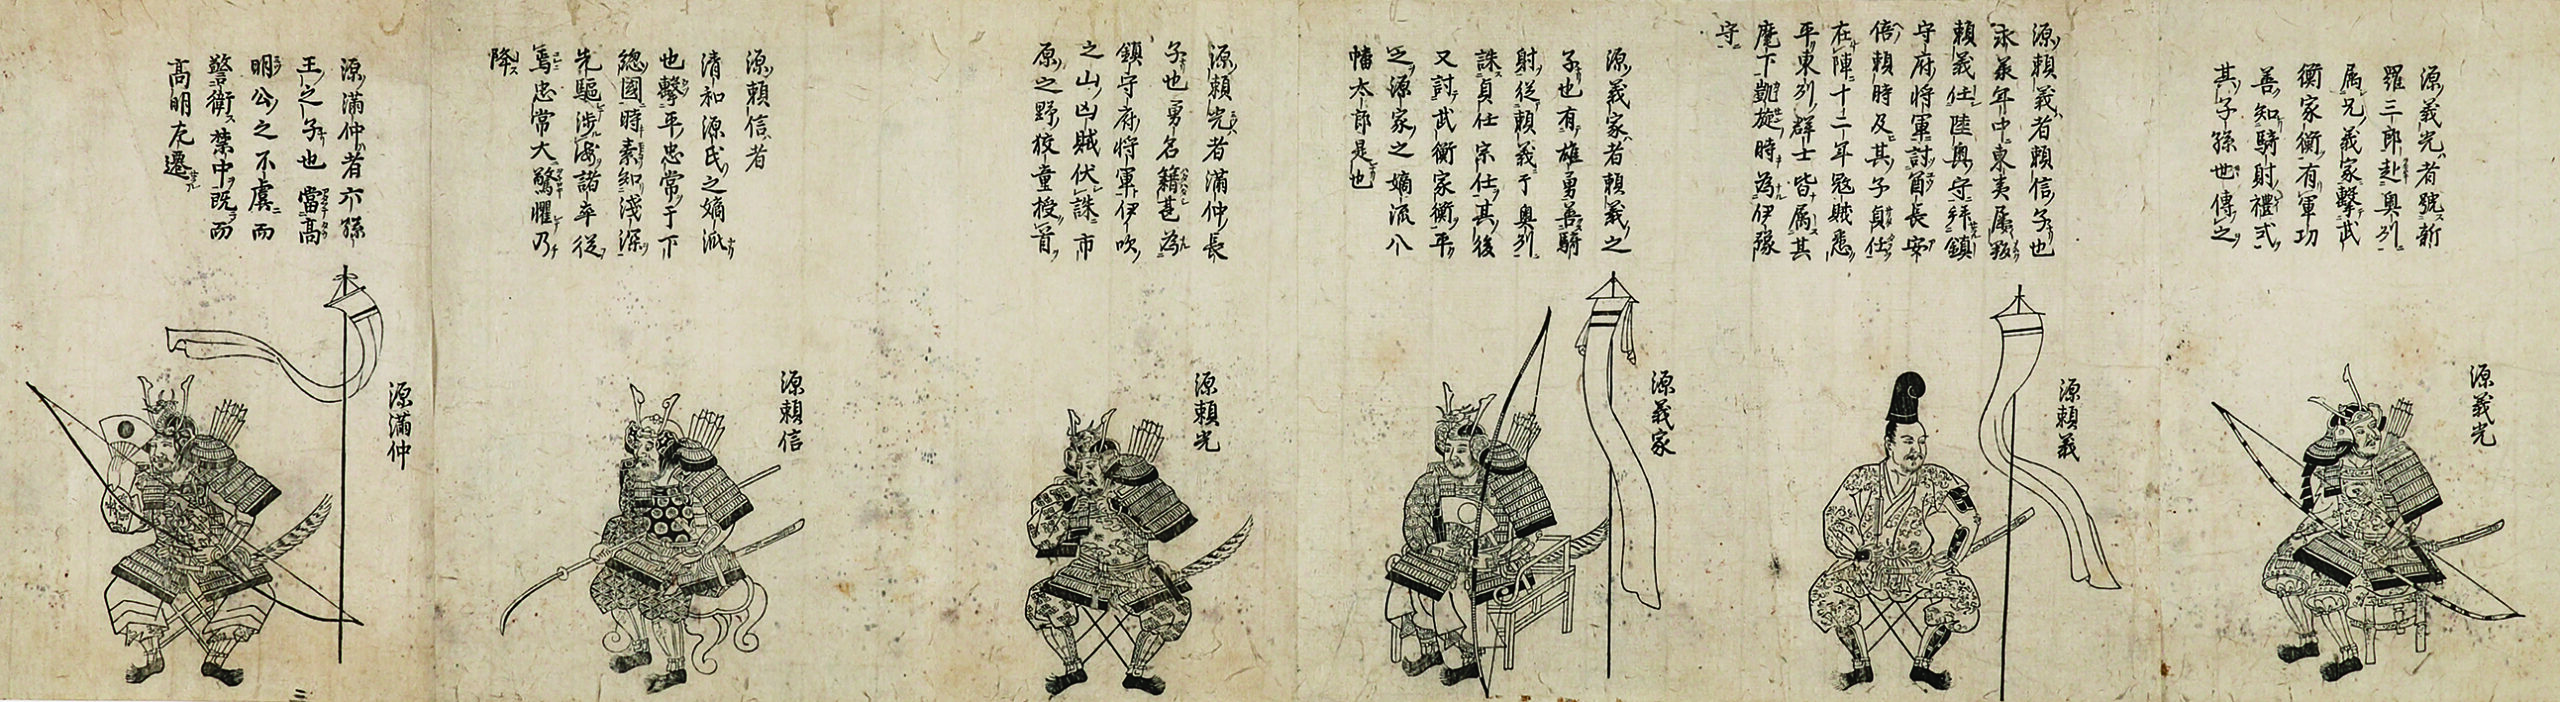 源義光者號新
羅三郎赴奥列
属兄義家擊武
衡家衡有軍功
善知騎射禮式
其子孫世傳之
源義光
源頼義者頼信子也
永承年中東夷属叛
頼義任陸奥守拜鎮
守府将軍討酋長安
倍頼時及其子貞任
在陣十二年冦賊悉
平東列群士皆属其
麾下凱旋時為伊豫
守
源頼義
源義家者頼義之
子也有雄勇善騎
射従頼義于奥列
誅貞任宗任其後
又討武衡家衡平
之源家之嫡流八
幡太郎是也
源義家
源頼光者満仲長
子也勇名籍甚為
鎮守府将軍伊吹
之山凶賊伏誅市
原之野狡童授首
源頼光
源頼信者
清和源氏之嫡流
也擊平忠常于下
總國時素知淺深
先驅渉海諸卒従
焉忠常大驚懼乃
降
源頼信
源滿仲者六孫
王之子也當高
明公之不虞而
警衛禁中既而
高明左遷
源滿仲
三